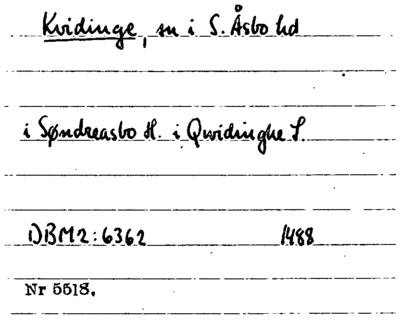 Kvidinge, sn i S. Åsbo hd
i Søndreasbo H. i Qwidinghe S.
DBM2:6362 1488
Nr 5518.